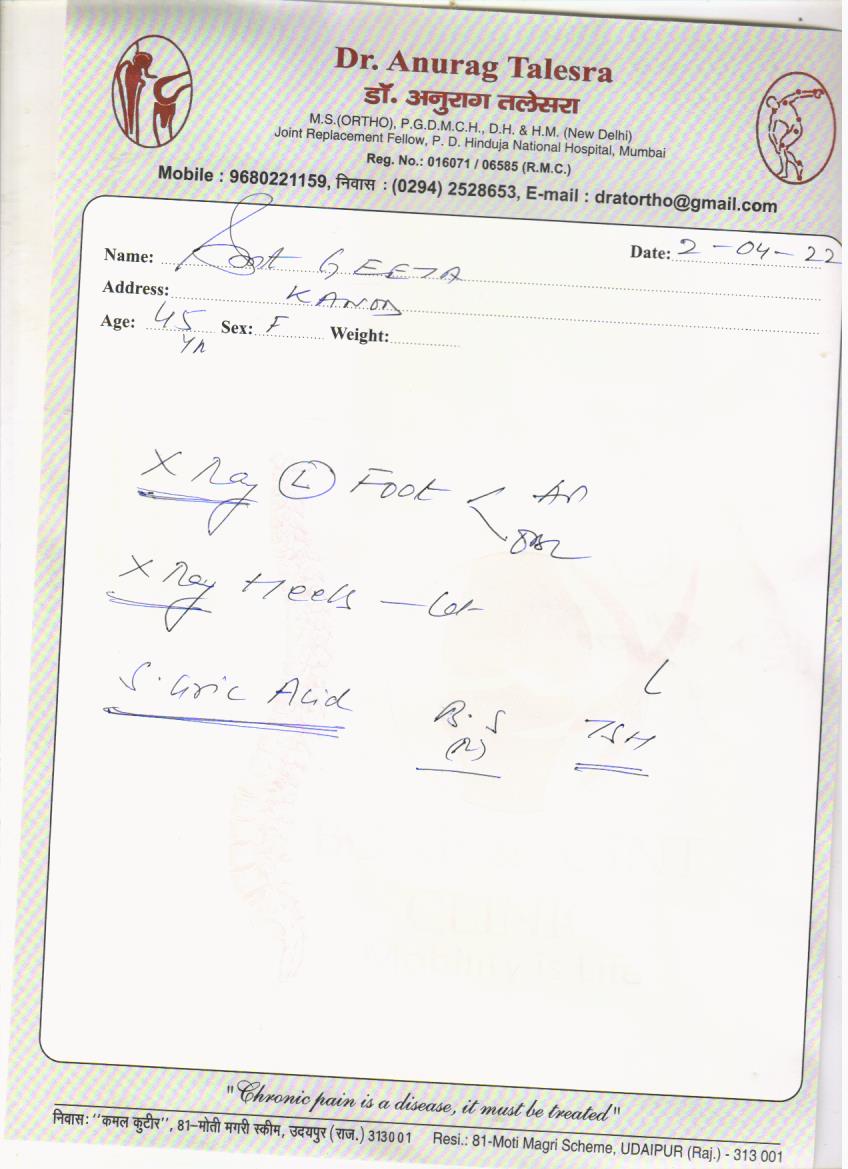 Dr. Anurag Talesra
डॉ. अनुराग तलेसरा
M.S.(ORTHO), P.G.D.M.C.H., D.H. & H.M. (New Delhi)
Joint Replacement Fellow, P. D. Hinduja National Hospital, Mumbai
Reg. No.: 016071 / 06585 (R.M.C.)
Mobile : 9680221159, निवास : (0294) 2528653, E-mail : dratortho@gmail.com
Name: Smt GEETA Date: 2-04-22
Address: KANOD
Age: 45 yr Sex: F Weight:
X Ray (L) Foot < AP
X Ray Heels - Lat
S. Uric Acid
B.S (R) TSH
CLINIC
Mobility is Life
"Chronic pain is a disease, it must be treated"
निवास: "कमल कुटीर", 81-मोती मगरी स्कीम, उदयपुर (राज.) 313001 Resi.: 81-Moti Magri Scheme, UDAIPUR (Raj.) - 313 001